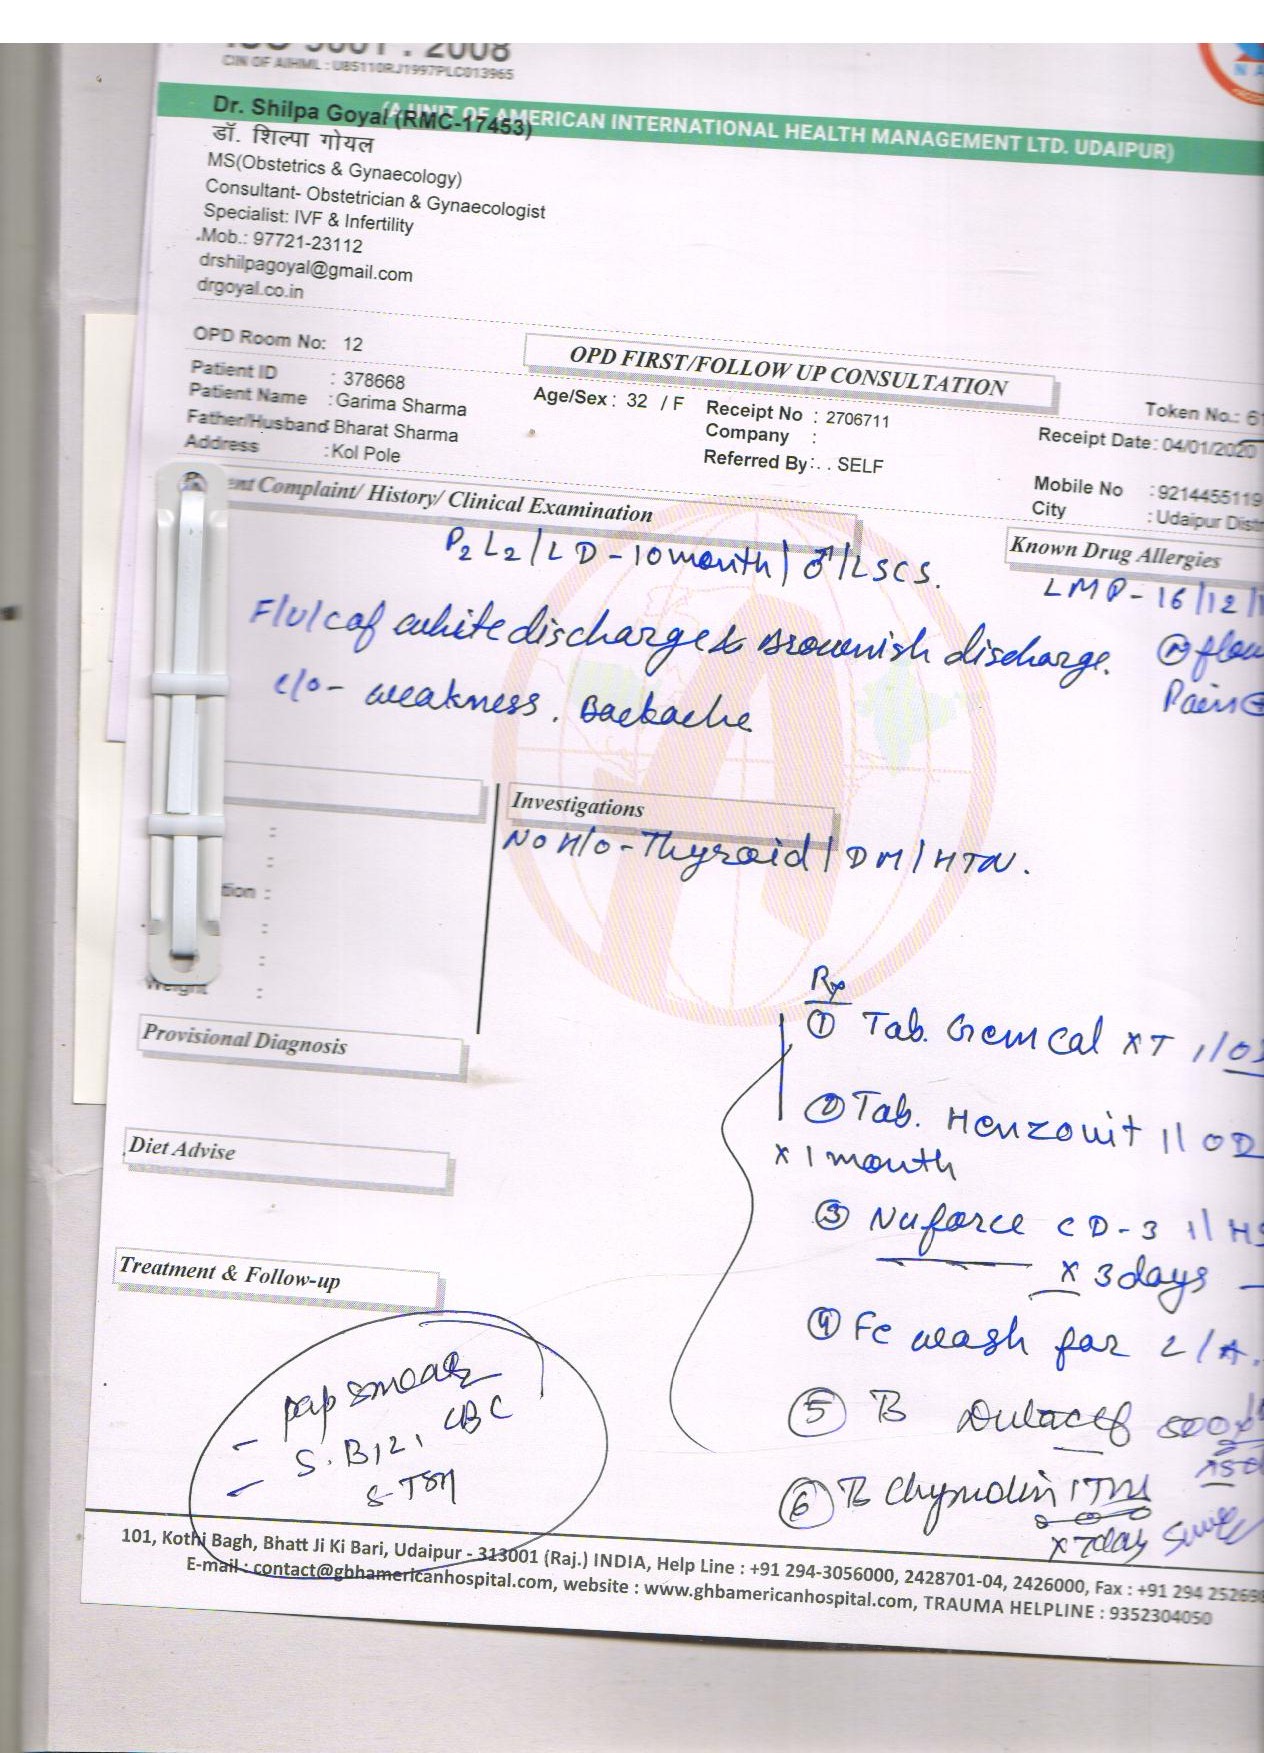 ISO 9001 : 2008
CIN OF AIHML : U85110RJ1997PLC013965
(A UNIT OF AMERICAN INTERNATIONAL HEALTH MANAGEMENT LTD. UDAIPUR)
Dr. Shilpa Goyal (RMC-17453)
डॉ. शिल्पा गोयल
MS(Obstetrics & Gynaecology)
Consultant- Obstetrician & Gynaecologist
Specialist: IVF & Infertility
Mob.: 97721-23112
drshilpagoyal@gmail.com
drgoyal.co.in
OPD Room No: 12
OPD FIRST/FOLLOW UP CONSULTATION
Token No.: 6
Patient ID : 378668
Patient Name : Garima Sharma
Father/Husband : Bharat Sharma
Address : Kol Pole
Age/Sex : 32 / F
Receipt No : 2706711
Company :
Referred By : . . SELF
Receipt Date : 04/01/2020
Mobile No : 9214455119
City : Udaipur Distr
ent Complaint/ History/ Clinical Examination
Known Drug Allergies
P2 L2 / L D - 10 month / ♂ / LSCS.
LMP - 16/12/1
F/U/C of white discharge & Brownish discharge.
(N) flow
Pain ⊕
c/o - weakness. Backache
Investigations
No H/O - Thyroid / DM / HTN.
tion :
Weight :
Provisional Diagnosis
Diet Advise
Treatment & Follow-up
Rx
① Tab. Gemcal XT 1/OD
② Tab. Henzovit 1/ OD
x 1 month
③ Nuforce CD-3 1/ HS
x 3 days
④ Fe wash for L/A.
⑤ Dulacef 500
⑥ Chymolin 1 TDS
x 7 day
- pap smear
- S. B12, CBC
S-TSH
101, Kothi Bagh, Bhatt Ji Ki Bari, Udaipur - 313001 (Raj.) INDIA, Help Line : +91 294-3056000, 2428701-04, 2426000, Fax : +91 294 252698
E-mail : contact@gbhamericanhospital.com, website : www.ghbamericanhospital.com, TRAUMA HELPLINE : 9352304050